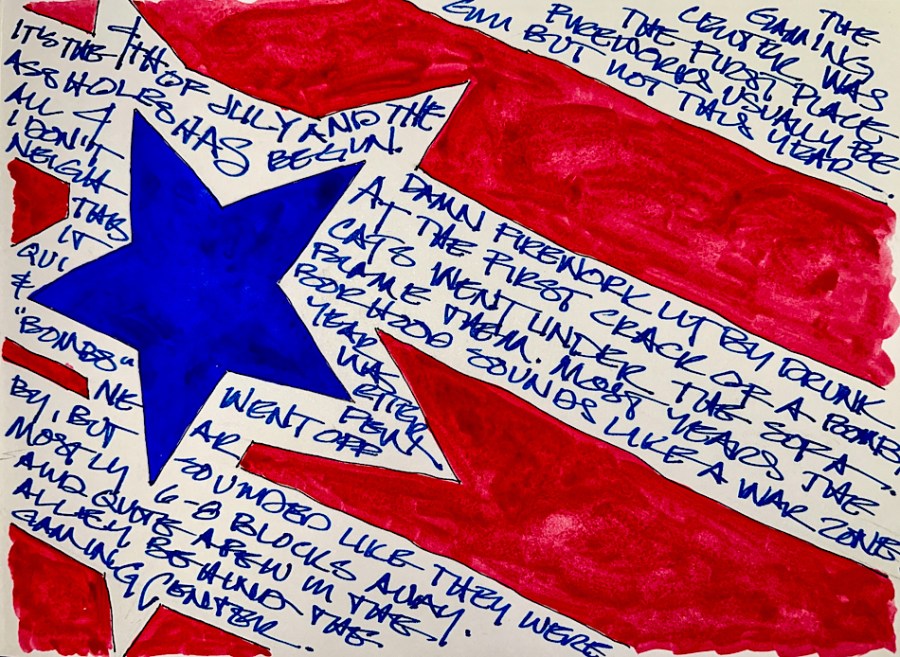 IT'S THE 4TH OF JULY AND THE DAMN FIREWORK LIT BY DRUNK
ASSHOLES HAS BEGUN. AT THE FIRST CRACK OF A BOMB,
ALL 4 CATS WENT UNDER THE SOFA.
I DON'T BLAME THEM. MOST YEARS THE
NEIGHBORHOOD SOUNDS LIKE A WAR ZONE
THIS YEAR
IT WAS
QUIETER
& FEWER
"BOMBS" WENT OFF
NEAR
BY, BUT SOUNDED LIKE THEY WERE
MOSTLY 6-8 BLOCKS AWAY.
AND QUITE A FEW IN THE
ALLEY BEHIND THE
GAMING CENTER.
THE
GAMING
CENTER WAS
THE FIRST PLACE
FIREWORKS USUALLY BE
GIN BUT NOT THIS YEAR.